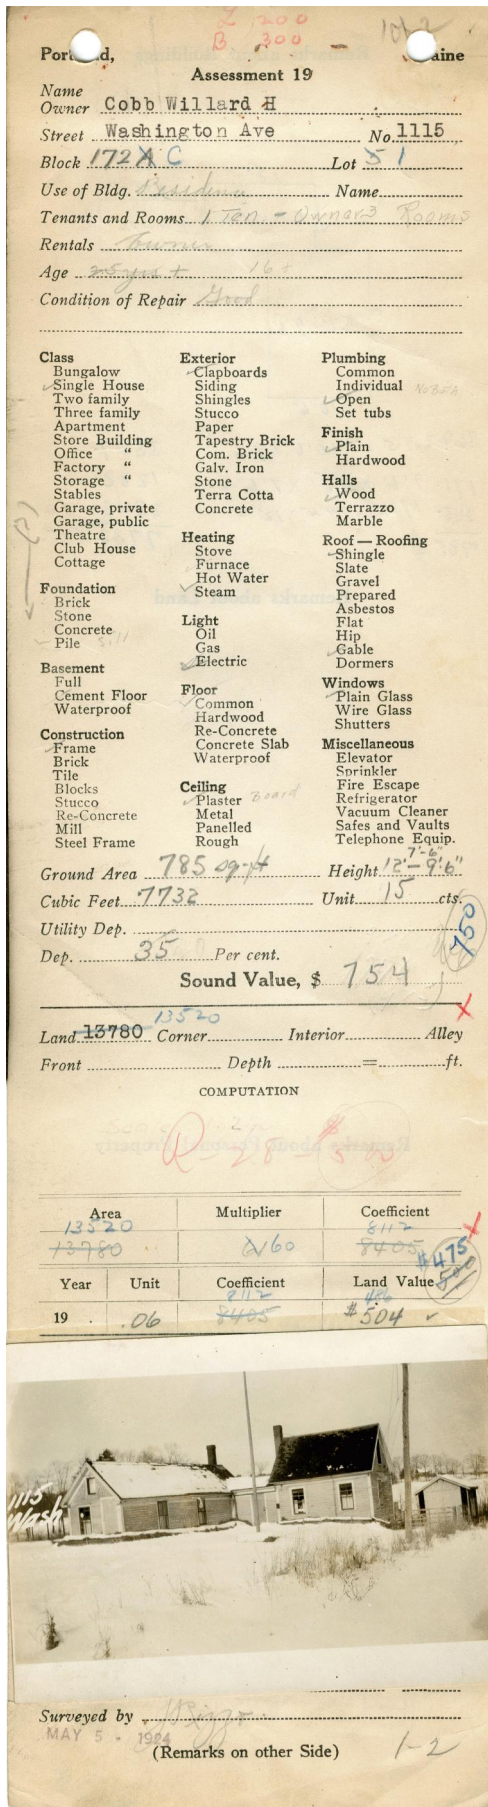 L 200
B 300
1 of 2
Assessment 19
Name
Owner Cobb Willard H
Street Washington Ave No 1115
Block 172 A C Lot 5 1
Use of Bldg. Residence Name
Tenants and Rooms 1 Ten - Owner 3 Rooms
Rentals Owner
Age 25 yrs + 16 +
Condition of Repair Good
Class
Bungalow
Single House
Two family
Three family
Apartment
Store Building
Office "
Factory "
Storage "
Stables
Garage, private
Garage, public
Theatre
Club House
Cottage
Foundation
Brick
Stone
Concrete
Pile Sill
Basement
Full
Cement Floor
Waterproof
Construction
Frame
Brick
Tile
Blocks
Stucco
Re-Concrete
Mill
Steel Frame
Exterior
Clapboards
Siding
Shingles
Stucco
Paper
Tapestry Brick
Com. Brick
Galv. Iron
Stone
Terra Cotta
Concrete
Heating
Stove
Furnace
Hot Water
Steam
Light
Oil
Gas
Electric
Floor
Common
Hardwood
Re-Concrete
Concrete Slab
Waterproof
Ceiling
Plaster Board
Metal
Panelled
Rough
Plumbing
Common
Individual
Open
Set tubs
Finish
Plain
Hardwood
Halls
Wood
Terrazzo
Marble
Roof — Roofing
Shingle
Slate
Gravel
Prepared
Asbestos
Flat
Hip
Gable
Dormers
Windows
Plain Glass
Wire Glass
Shutters
Miscellaneous
Elevator
Sprinkler
Fire Escape
Refrigerator
Vacuum Cleaner
Safes and Vaults
Telephone Equip.
7'-6"
Ground Area 785 sq-ft Height 12'-9'.6"
Cubic Feet 7732 Unit 15 cts.
Utility Dep.
750
Dep. 35 Per cent.
Sound Value, $ 754
13520
Land 13780 Corner Interior Alley
Front Depth = ft.
COMPUTATION
Area Multiplier Coefficient
13520 8112
13780 60 8405
$475
500
Year Unit Coefficient Land Value
8112 486
19 .06 8405 $504
1115
Wash
Surveyed by
MAY 5 - 1924
(Remarks on other Side)
1-2